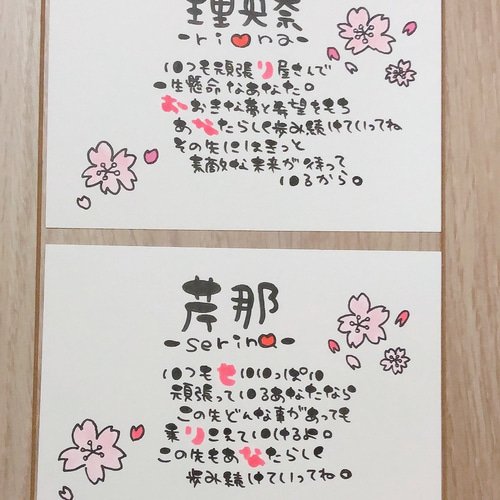 理央奈
-riona-
いつも頑張り屋さんで
一生懸命なあなた。
おおきな夢と希望をもち
あなたらしく歩み続けていってね
その先にはきっと
素敵な未来が待って
いるから。
芹那
-serina-
いつもせいいっぱい
頑張っているあなたなら
この先どんな事があっても
乗りこえていけるよ。
この先もあなたらしく
歩み続けていってね。